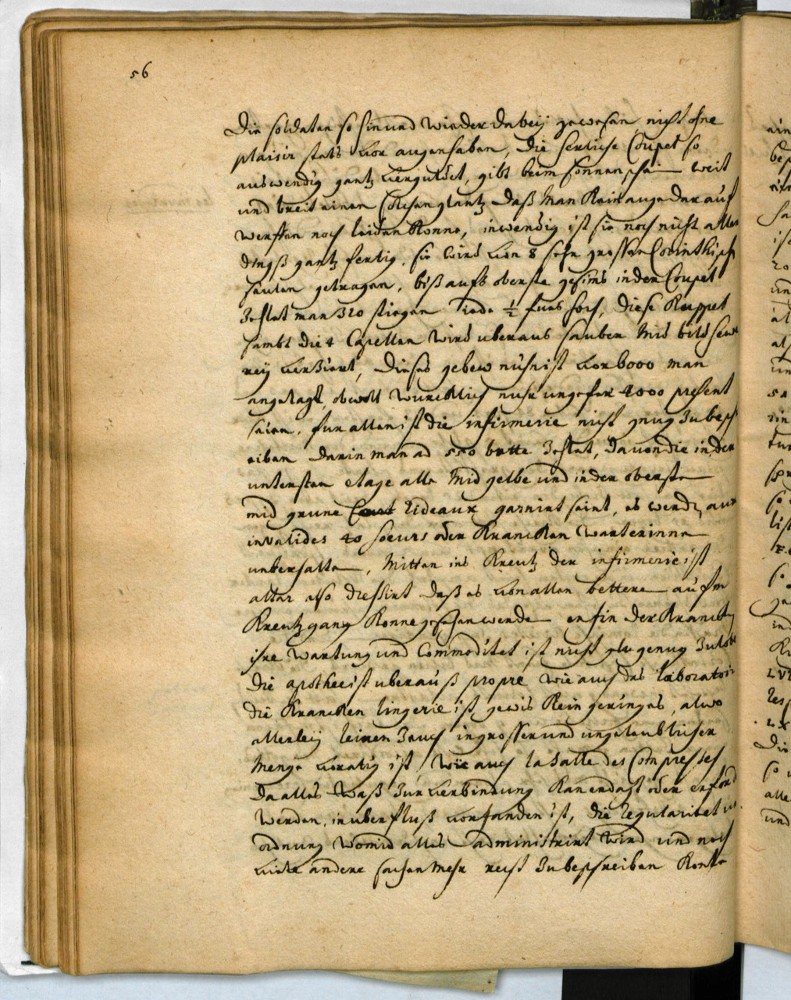 56
Die soldaten so hin und wieder dabeÿ gewesen nicht ohne
plaisir stets vor augen haben, die herliche Coupel so
auswendig gantz vergüldet, gibt beim sonnenschein weit
und breit einen solchen glantz daß man Kein auge darauf
werffen noch leiden Konne, inwendig ist sie noch nicht aller
dings gantz fertig, sie wird von 8 sehr grossen Corinthisch
saulen getragen, biß aufs oberste gesims in der Coupel
Zehlet man 320 stiegen jede ½ fues hoch, diese Kuppel
sambt die 4 Capellen wird uberaus sauber mid bildhew
reÿ verziert, dieses gebew nuhn ist vor 6000 man
angelegt, obwoll wurcklich nuhr ungefer 4000 present
seien. fur allen ist die infirmerie nicht gnug zu besch
reiben darin man ad 500 bette Zehlet, davon die in der
untersten etage alle mid gelbe und in der obersten
mid grune rideaux garnirt seint, es werden auch
invalides 40 soeurs oder Krancken warterinnen
underhalten, mitten ins Kreutz der infirmerie ist
altar also dressirt daß es von allen bettern auf'm
Kreutzgang Konne gesehen werden enfin der Krancken
ihre wartung und Commoditet ist nicht gnug zu lob
die apothec ist uberauß propre wie auch das laboratori
die Krancken lingerie ist gewis Kein geringes, alwo
allerleÿ leinen Zeuch in grosser und ungleublicher
menge vorätig ist, wie auch la salle des Compresses
da alles waß zur verbindung Kan erdacht oder erford
werden, in uberfluß vorhanden ist, die regularitet u.
ordnung womid alles administrirt wird und noch
viele andere sachen mehr recht zu beschreiben Konte